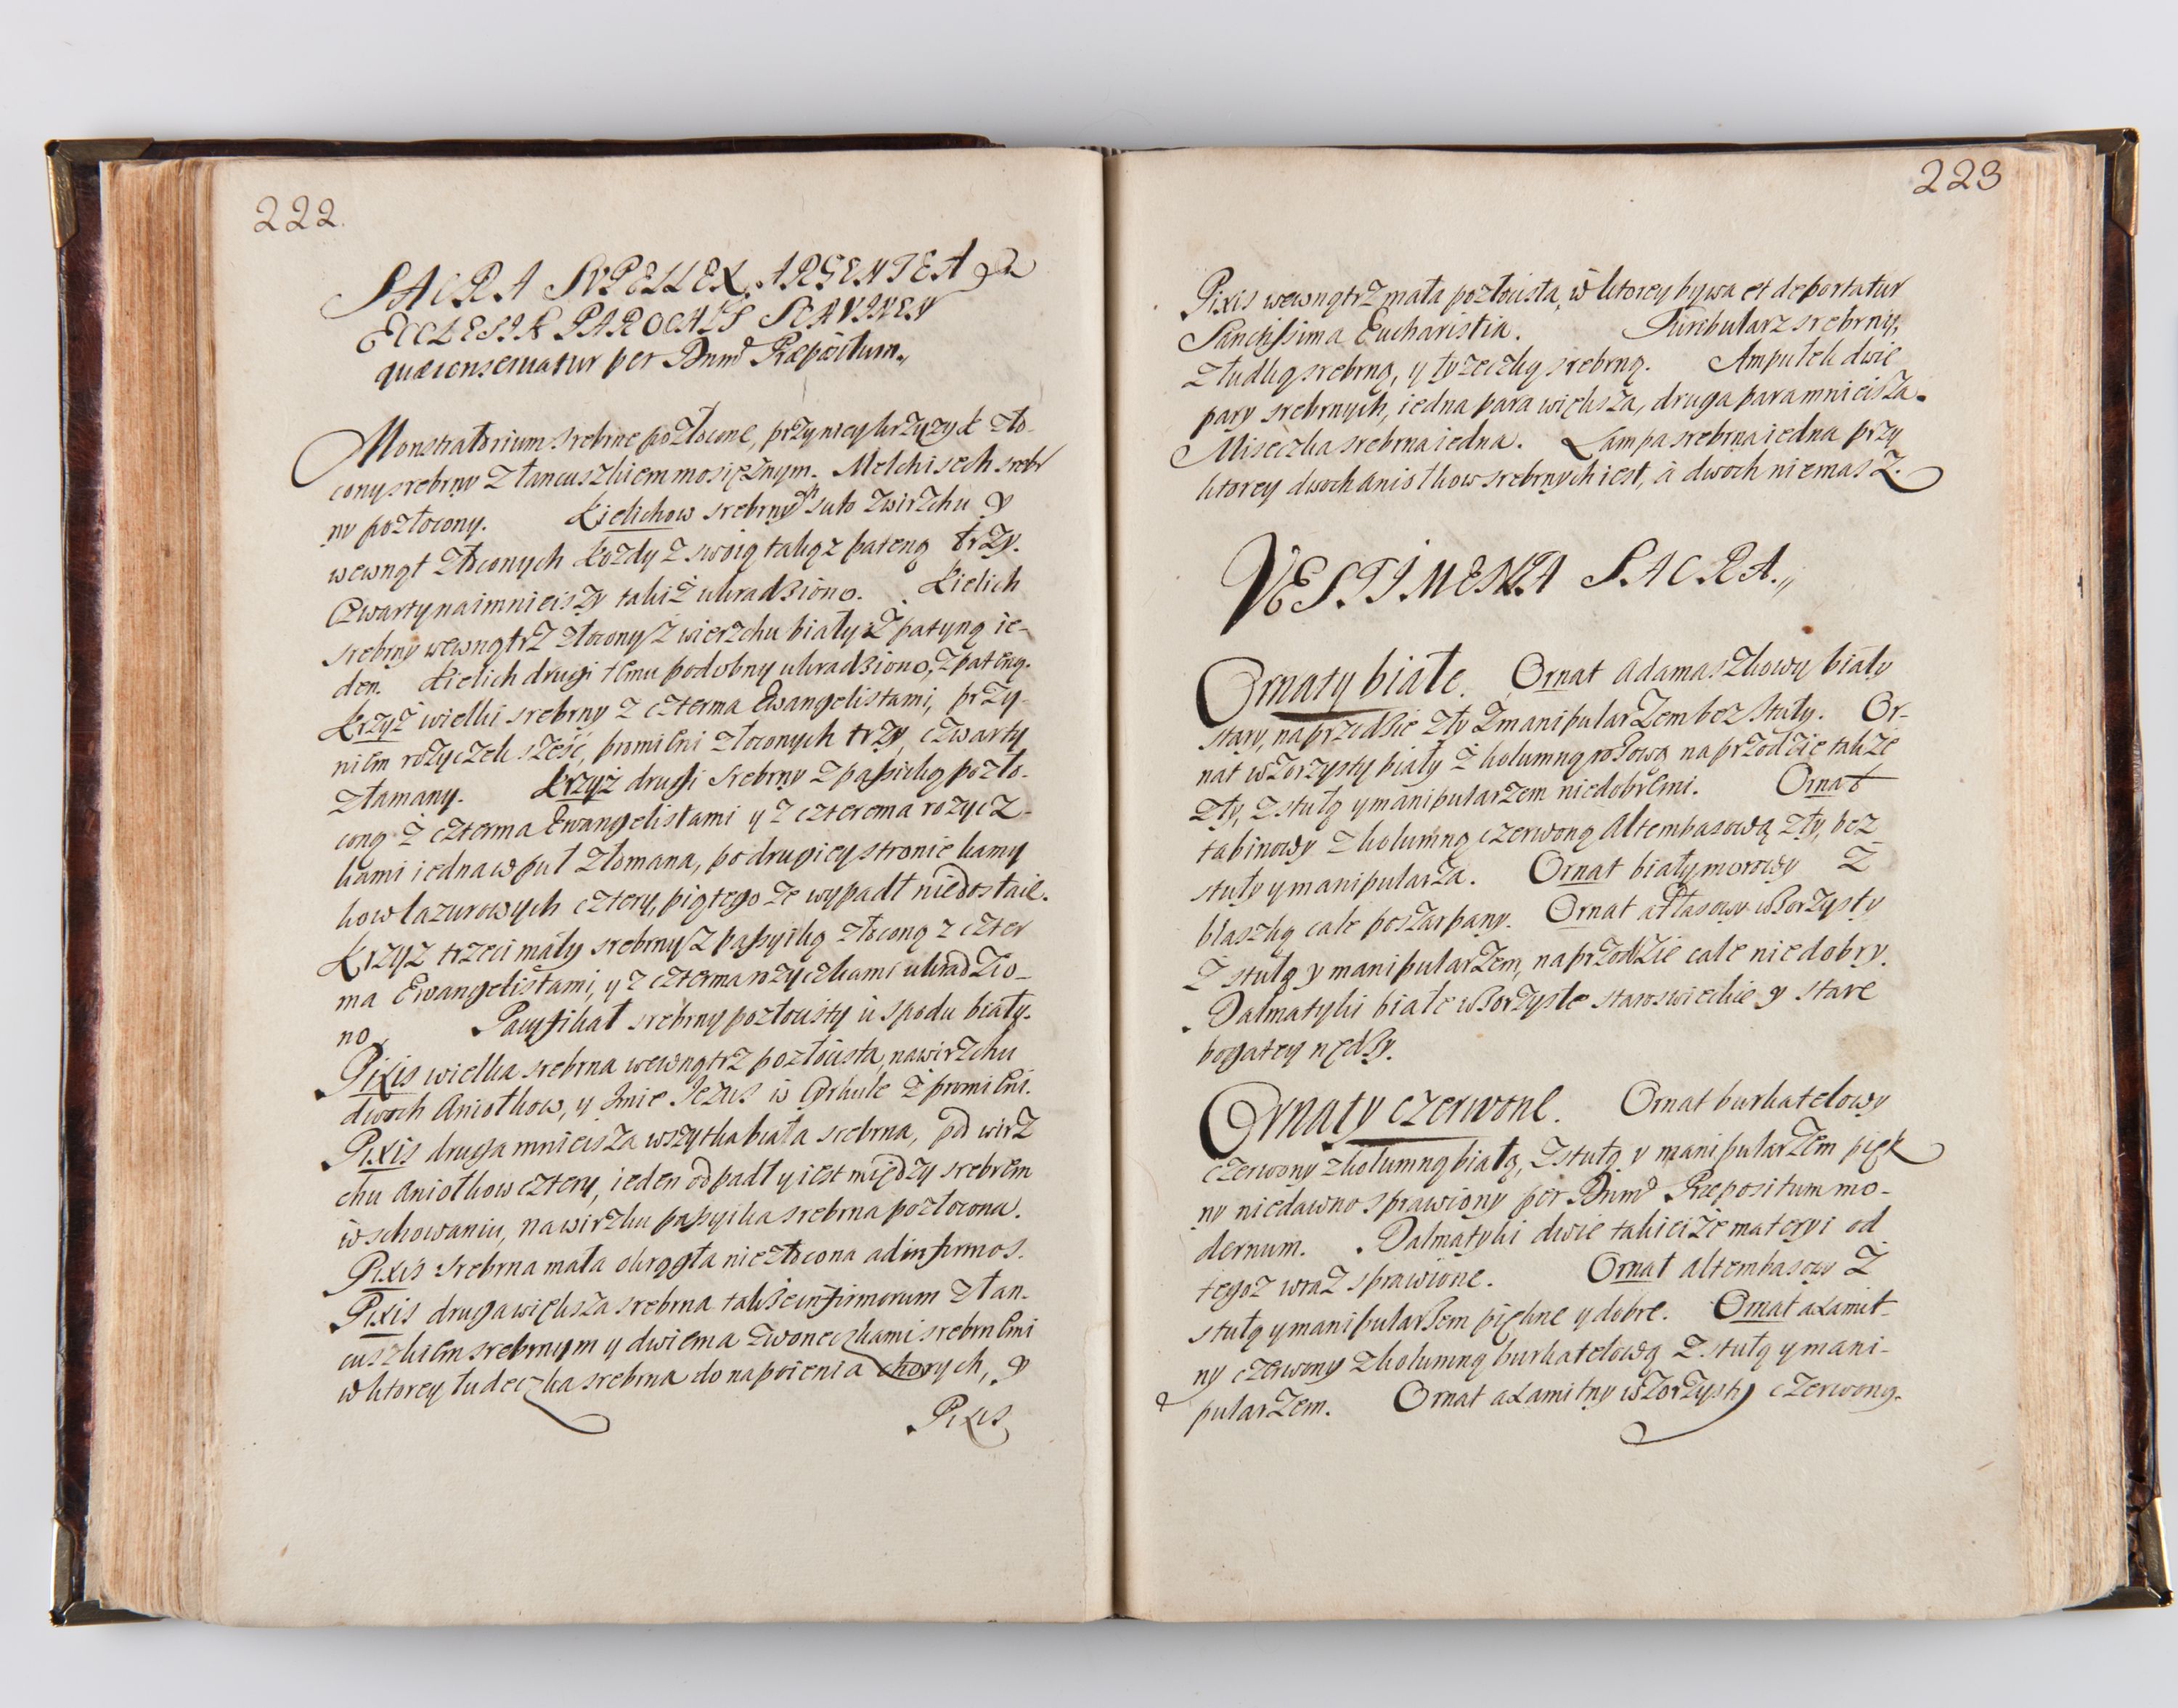 222.
SACRA SVPELLEX ARGENTEA
ECCLESIÆ PAROCHIS
quæ conseruatur per Dnum Præpositum.,
Monstratorium srebrne pozłocone, przy niey krzyzyk zło-
cony srebrny z łancuszkiem mosięznym. Melchisech srebr
ny pozłocony. Kielichow srebrnych suto zwirzchu y
wewnąt złoconych kozdy z swoią taką z pateną trzy.
Czwarty naimnieiszy takiż ukradziono. Kielich
srebrny wewnątrz złocony z wierzchu biały z patyną ie-
den. Kielich drugi temu podobny ukradziono, z pateną.
Krzyż wielki srebrny z czterma Ewangelistami, przy
nim rożyczek sześć, promieni złoconych trzy, czwarty
złamany. Krzyż drugi srebrny z passyiką pozło-
coną z czterma Ewangelistami y z czterema rozycz-
kami iedna w puł złomana, po drugiey stronie kamy
kow lazurowych cztery, piątego ze wypadł niedostaie.
Krzyż trzeci mały srebrny z passyiką złoconą z czter
ma Ewangelistami, y z czterma rozyczkami ukradzio-
no. Pacyfikał srebrny pozłocisty u spodu biały.
Pixis wielka srebrna wewnątrz pozłocista, nawirzchu
dwoch Aniołkow, y Imie Jezus w Cyrkule z promieni.
Pixis druga mnieisza wszytka biała srebrna, pod wirz
chu Aniołkow cztery, ieden odpadł y iest między srebrem
w schowaniu, na wirzhu passyika srebrna pozłocona.
Pixis srebrna mała okrągła nie złocona ad infirmos.
Pixis druga większa srebrna takze infirmorum z łan-
cuszkiem srebrnym y dwiema dzwoneczkami srebrnemi
w ktorey łudeczka srebrna do napoienia chorych, y
Pixis
223
Pixis wewnątrz mała pozłocista, w ktorey bywa et deportatur
Sanctissima Eucharistia. Turibularz srebrny,
z łudką srebrną, y łyzeczką srebrną. Ampułek dwie
pary srebrnych, iedna para większa, druga para mnieisza.
Miseczka srebrna iedna. Lampa srebrna iedna przy
ktorey dwoch aniołkow srebrnych iest, a dwoch niemasz.
VESTIMENTA SACRA.,
Ornaty białe. Ornat Adamaszkowy biały
stary, na przedzie zły z manipularzem bez stuły. Or-
nat wzorzysty biały z kolumną rożową na przodzie takze
zły, z stułą y manipularzem niedobremi. Ornat
tabinowy z kolumną czerwoną Altembasową zły, bez
stuły y manipularza. Ornat biały morowy z
blaszką cale poszarpany. Ornat atłasowy wzorzysty
z stułą y manipularzem, na przodzie cale niedobry.
Dalmatyki białe wzorzyste staroswieckie y stare
bogatey nędzy.
Ornaty czerwone. Ornat burkatelowy
czerwony z kolumną białą, z stułą y manipularzem pięk
ny niedawno sprawiony per Dnum Præpositum mo-
dernum. Dalmatyki dwie takieiże materyi od
tegoz wraz sprawione. Ornat altembasowy z
stułą y manipularzem piękne y dobre. Ornat axamit-
ny czerwony z kolumną burkatelową z stułą y mani-
pularzem. Ornat axamitny wzorzysty czerwony.